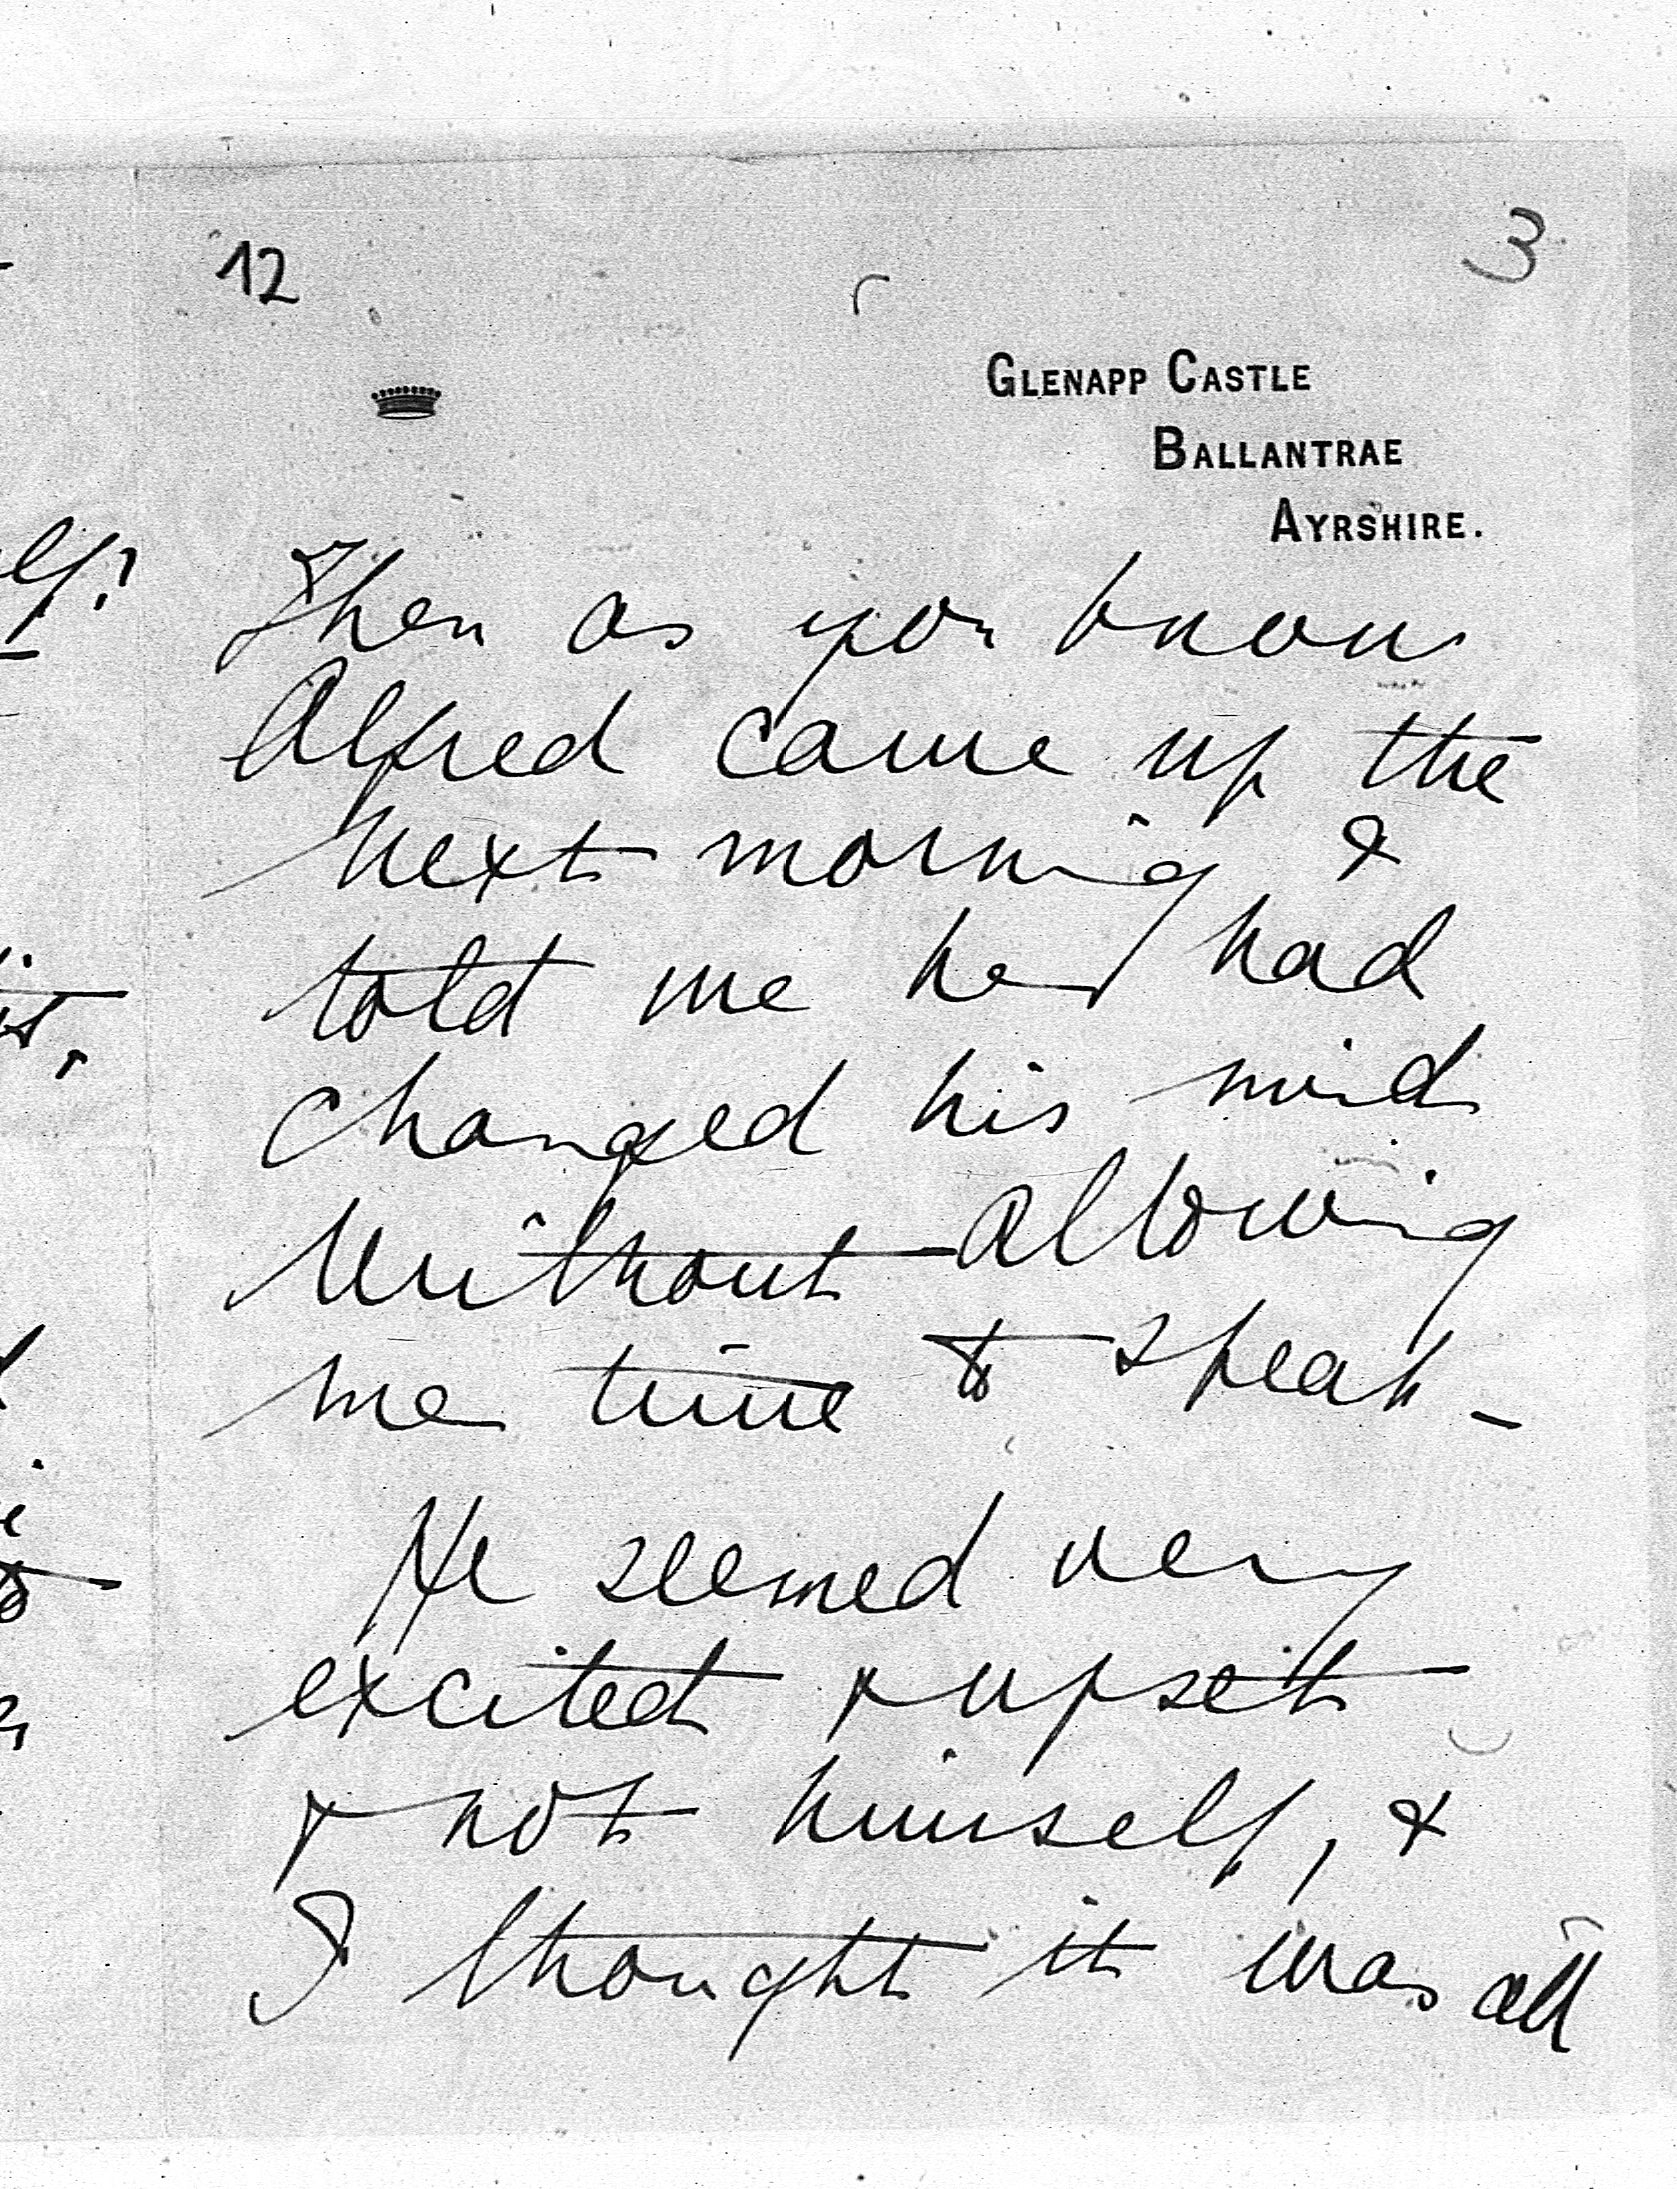 12
3
GLENAPP CASTLE
BALLANTRAE
AYRSHIRE.
Then as you know
Alfred came up the
next morning &
told me he had
changed his mind
without allowing
me time to speak –
He seemed very
excited & upset
& not himself, &
I thought it was all